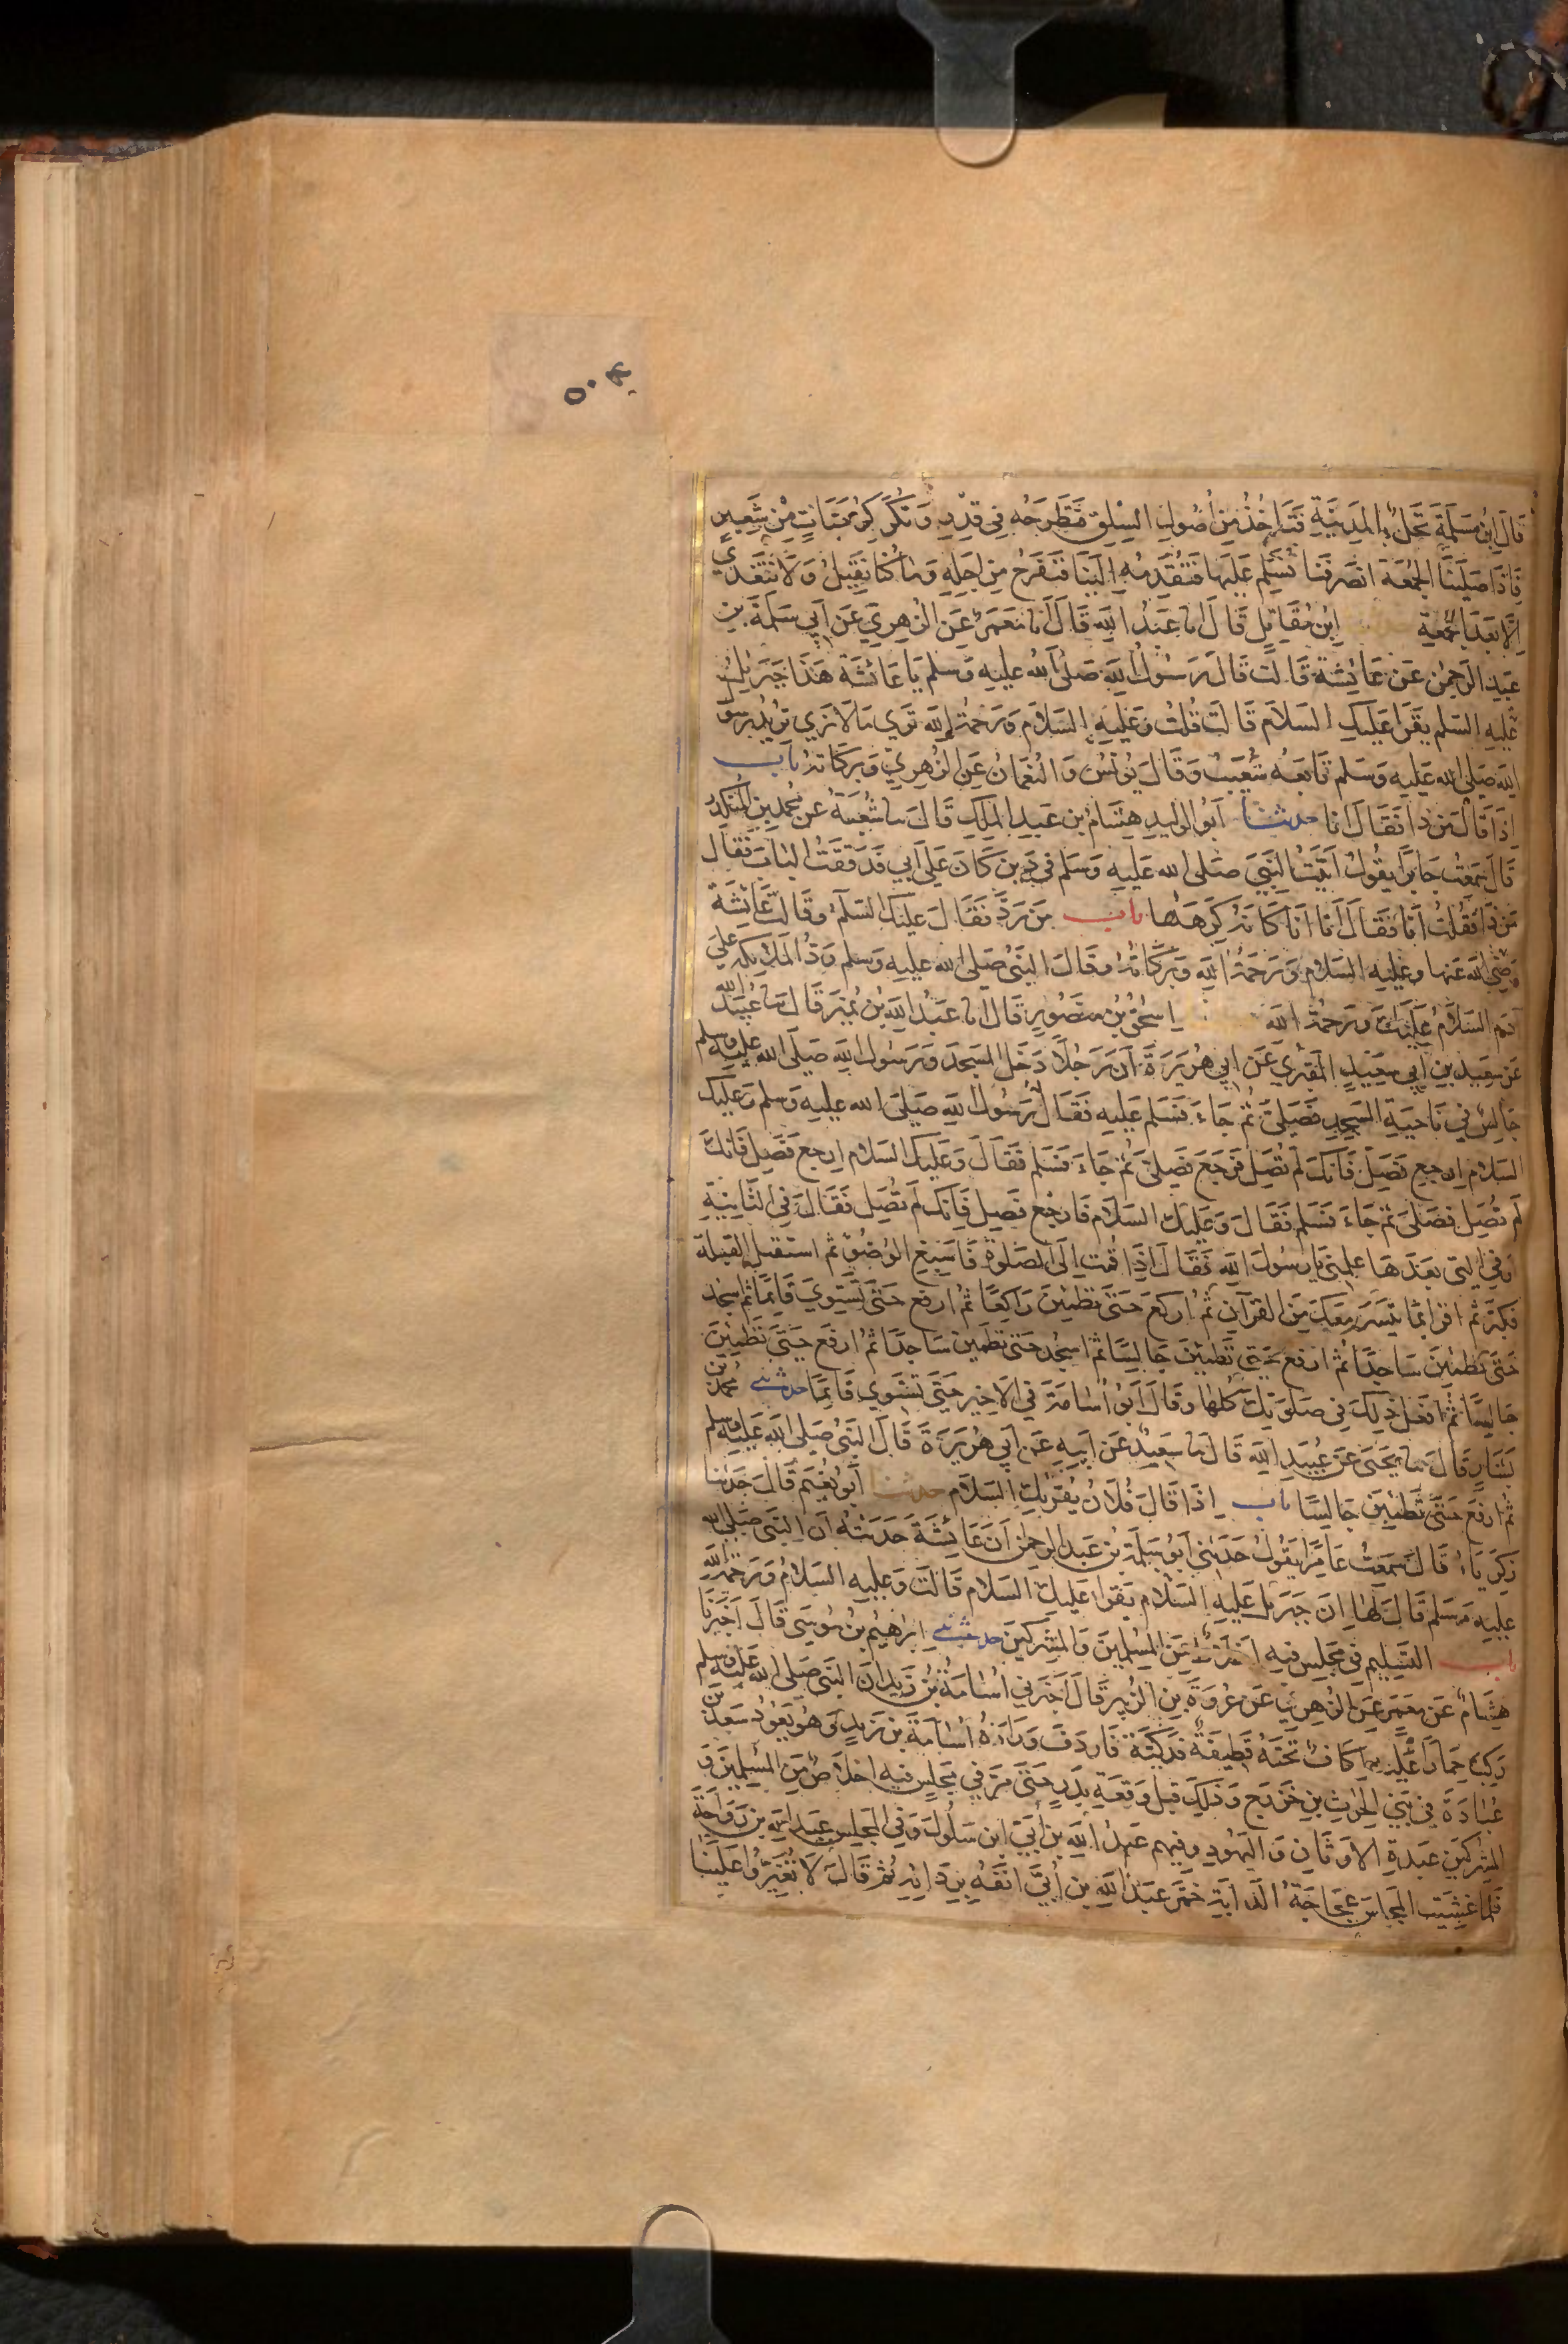 ٥٠٤
قَالَ ابْنُ مَسْلَمَةَ نَخْلٌ بِالْمَدِينَةِ فَتَأْخُذُ مِنْ أُصُولِ السِّلْقِ فَتَطْرَحُهُ فِي قِدْرٍ وَتُكَرْكِرُ حَبَّاتٍ مِنْ شَعِيرٍ
فَإِذَا صَلَّيْنَا الْجُمُعَةَ انْصَرَفْنَا نُسَلِّمُ عَلَيْهَا فَتُقَدِّمُهُ إِلَيْنَا فَنَفْرَحُ مِنْ أَجْلِهِ وَمَا كُنَّا نَقِيلُ وَلَا نَتَغَدَّى
إِلَّا بَعْدَ الْجُمُعَةِ ابْنُ مُقَاتِلٍ قَالَ انا عَبْدُ اللهِ قَالَ انا مَعْمَرٌ عَنِ الزُّهْرِيِّ عَنْ أَبِي سَلَمَةَ بْنِ
عَبْدِ الرَّحْمٰنِ عَنْ عَائِشَةَ قَالَتْ قَالَ رَسُولُ اللهِ صَلَّى اللهُ عَلَيْهِ وَسَلَّمَ يَا عَائِشَةُ هَذَا جِبْرِيلُ
عَلَيْهِ السَّلَم يَقْرَأُ عَلَيْكِ السَّلَامَ قَالَتْ قُلْتُ وَعَلَيْهِ السَّلَامُ وَرَحْمَةُ اللهِ تَرَى مَا لَا نَرَى تُرِيدُ رَسُولَ
اللهِ صَلَّى اللهُ عَلَيْهِ وَسَلَّم تَابَعَهُ شُعَيْبٌ وَقَالَ يُونُسُ وَالنُّعْمَانُ عَنِ الزُّهْرِيِّ وَبَرَكَاتُهُ باب
إِذَا قَالَ مَنْ ذَا فَقَالَ انَا حدثنا أَبُو الْوَلِيدِ هِشَامُ بْنُ عَبْدِ الْمَلِكِ قَالَ سا شُعْبَةُ عَنْ مُحَمَّدِ بْنِ الْمُنْكَدِرِ
قَالَ سَمِعْتُ جَابِرًا يَقُولُ أَتَيْتُ النَّبِيَّ صَلَّى الله عَلَيْهِ وَسَلَّم فِي دَيْنٍ كَانَ عَلَى أَبِي فَدَقَقْتُ الْبَابَ فَقَالَ
مَنْ ذَا فَقُلْتُ أَنَا فَقَالَ أَنَا أَنَا كَأَنَّهُ كَرِهَهَا باب مَنْ رَدَّ فَقَالَ عَلَيْكَ السَّلَمُ وَقَالَتْ عَائِشَةُ
رَضِيَ اللهُ عَنْهَا وَعَلَيْهِ السَّلَامُ وَرَحْمَةُ اللهِ وَبَرَكَاتُهُ وَقَالَ النَّبِيُّ صَلَّى الله عَلَيْهِ وَسَلَّم رَدَّ الْمَلَائِكَةُ عَلَى
آدَمَ السَّلَامُ عَلَيْكَ وَرَحْمَةُ اللهِ إِسْحٰقُ بْنُ مَنْصُورٍ قَالَ انا عَبْدُ اللهِ بْنُ نُمَيْرٍ قَالَ سا عُبَيْدُ اللهِ
عَنْ سَعِيدِ بْنِ أَبِي سَعِيدٍ الْمَقْبُرِيِّ عَنْ أَبِي هُرَيْرَةَ أَنَّ رَجُلًا دَخَلَ الْمَسْجِدَ وَرَسُولُ اللهِ صَلَّى الله عَلَيْهِ وَسَلَّم
جَالِسٌ فِي نَاحِيَةِ الْمَسْجِدِ فَصَلَّى ثُمَّ جَاءَ فَسَلَّمَ عَلَيْهِ فَقَالَ رَسُولُ اللهِ صَلَّى الله عَلَيْهِ وَسَلَّم وَعَلَيْكَ
السَّلَام ارْجِعْ فَصَلِّ فَإِنَّكَ لَمْ تُصَلِّ فَرَجَعَ فَصَلَّى ثُمَّ جَاءَ فَسَلَّمَ فَقَالَ وَعَلَيْكَ السَّلَامُ ارْجِعْ فَصَلِّ فَإِنَّكَ
لَمْ تُصَلِّ فَصَلَّى ثُمَّ جَاءَ فَسَلَّمَ فَقَالَ وَعَلَيْكَ السَّلَام فَارْجِعْ فَصَلِّ فَإِنَّكَ لَمْ تُصَلِّ فَقَالَ فِي الثَّانِيَةِ
أَوْ فِي الَّتِي بَعْدَهَا عَلِّمْنِي يَا رَسُولَ اللهِ فَقَالَ إِذَا قُمْتَ إِلَى الصَّلٰوةِ فَأَسْبِغِ الْوُضُوءَ ثُمَّ اسْتَقْبِلِ الْقِبْلَةَ
فَكَبِّرْ ثُمَّ اقْرَأْ بِمَا تَيَسَّرَ مَعَكَ مِنَ الْقُرْآنِ ثُمَّ ارْكَعْ حَتَّى تَطْمَئِنَّ رَاكِعًا ثُمَّ ارْفَعْ حَتَّى تَسْتَوِيَ قَائِمًا ثُمَّ اسْجُدْ
حَتَّى تَطْمَئِنَّ سَاجِدًا ثُمَّ ارْفَعْ حَتَّى تَطْمَئِنَّ جَالِسًا ثُمَّ اسْجُدْ حَتَّى تَطْمَئِنَّ سَاجِدًا ثُمَّ ارْفَعْ حَتَّى تَطْمَئِنَّ
جَالِسًا ثُمَّ افْعَلْ ذٰلِكَ فِي صَلٰوتِكَ كُلِّهَا وَقَالَ أَبُو أُسَامَةَ فِي الْأَخِيرِ حَتَّى تَسْتَوِيَ قَائِمًا حدثني مُحَمَّدُ بْنُ
بَشَّارٍ قَالَ سا يَحْيَى عَنْ عُبَيْدِ اللهِ قَالَ سا سَعِيدٌ عَنْ أَبِيهِ عَنْ أَبِي هُرَيْرَةَ قَالَ النَّبِيُّ صَلَّى اللهُ عَلَيْهِ وَسَلَّم
ثُمَّ ارْفَعْ حَتَّى تَطْمَئِنَّ جَالِسًا باب إِذَا قَالَ فُلَانٌ يُقْرِئُكَ السَّلَامَ حدثنا أَبُو نُعَيْمٍ قَالَ حَدَّثَنَا
زَكَرِيَّاءُ قَالَ سَمِعْتُ عَامِرًا يَقُولُ حَدَّثَنِي أَبُو سَلَمَةَ بْنُ عَبْدِ الرَّحْمٰنِ أَنَّ عَائِشَةَ حَدَّثَتْهُ أَنَّ النَّبِيَّ صَلَّى الله
عَلَيْهِ وَسَلَّم قَالَ لَهَا إِنَّ جِبْرِيلَ عَلَيْهِ السَّلَام يَقْرَأُ عَلَيْكِ السَّلَامَ قَالَتْ وَعَلَيْهِ السَّلَامُ وَرَحْمَةُ اللهِ
باب التَّسْلِيمِ فِي مَجْلِسٍ فِيهِ أَخْلَاطٌ مِنَ الْمُسْلِمِينَ وَالْمُشْرِكِينَ حدثني إِبْرَاهِيمُ بْنُ مُوسَى قَالَ أَخْبَرَنَا
هِشَامٌ عَنْ مَعْمَرٍ عَنِ الزُّهْرِيِّ عَنْ عُرْوَةَ بْنِ الزُّبَيْرِ قَالَ أَخْبَرَنِي أُسَامَةُ بْنُ زَيْدٍ أَنَّ النَّبِيَّ صَلَّى الله عَلَيْهِ وَسَلَّم
رَكِبَ حِمَارًا عَلَيْهِ إِكَافٌ تَحْتَهُ قَطِيفَةٌ فَدَكِيَّةٌ فَارْدَفَ وَرَاءَهُ أُسَامَةَ بْنَ زَيْدٍ وَهُوَ يَعُودُ سَعْدَ بْنَ
عُبَادَةَ فِي بَنِي الْحٰرِثِ بْنِ خَزْرَجٍ وَذٰلِكَ قَبْلَ وَقْعَةِ بَدْرٍ حَتَّى مَرَّ فِي مَجْلِسٍ فِيهِ اخلَاطٌ مِنَ الْمُسْلِمِينَ وَ
الْمُشْرِكِينَ عَبَدَةِ الْأَوْثَانِ وَالْيَهُودِ وَفِيهِمْ عَبْدُ اللهِ بْنُ أُبَيٍّ ابْنُ سَلُولَ وَفِي الْمَجْلِسِ عَبْدُ اللهِ بْنُ رَوَاحَةَ
فَلَمَّا غَشِيَتِ الْمَجْلِسَ عَجَاجَةُ الدَّابَّةِ خَمَّرَ عَبْدُ اللهِ بْنُ أُبَيٍّ أَنْفَهُ بِرِدَائِهِ ثُمَّ قَالَ لَا تُغَبِّرُوا عَلَيْنَا